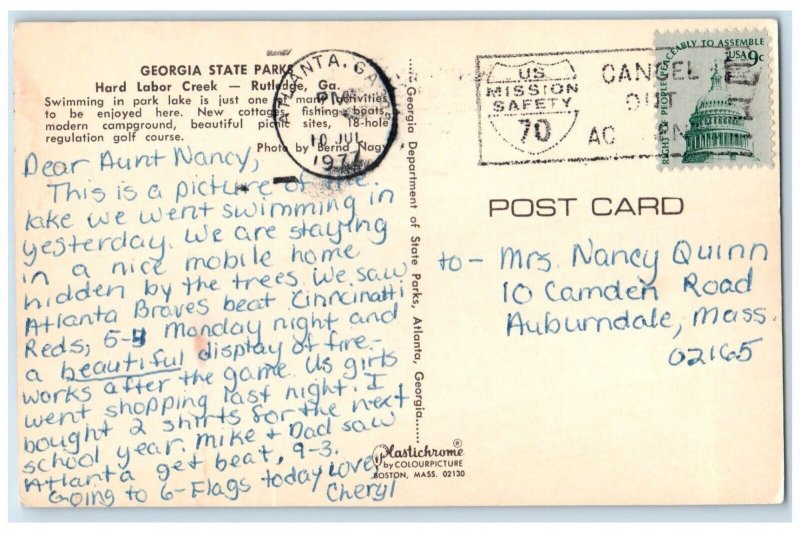 GEORGIA STATE PARKS
Hard Labor Creek — Rutledge, Ga.
Swimming in park lake is just one of many activities
to be enjoyed here. New cottages, fishing boats,
modern campground, beautiful picnic sites, 18-hole
regulation golf course.
Photo by Bernd Nagy
ATLANTA, GA
PM
10 JUL
1977
US
MISSION
SAFETY
70
CANCEL
OUT
PEACEABLY TO ASSEMBLE
USA 9c
RIGHT OF PEOPLE
POST CARD
Dear Aunt Nancy,
This is a picture of the
lake we went swimming in
yesterday. We are staying
in a nice mobile home
hidden by the trees. We saw
Atlanta Braves beat Cinncinatti
Reds, 5-4 Monday night and
a beautiful display of fire-
works after the game. Us girls
went shopping last night. I
bought 2 shirts for the next
school year. Mike + Dad saw
Atlanta get beat, 9-3.
Going to 6-Flags today Love,
Cheryl
Georgia Department of State Parks, Atlanta, Georgia
to- Mrs. Nancy Quinn
10 Camden Road
Auburndale, Mass.
02165
Plastichrome®
by COLOURPICTURE
BOSTON, MASS. 02130